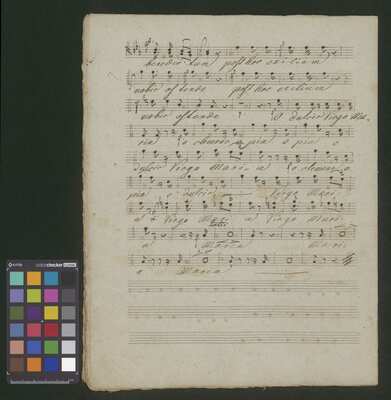 benedictum post hoc exilium
nobis ostende post hoc exilium
nobis ostende O dulcis Virgo Ma-
ria o clemens o pia o pia o
dulcis Virgo Maria o clemens o
pia o dulcis Virgo Mari-
a Virgo Mari- a Virgo Mari-
a Maria Mari-
a Maria